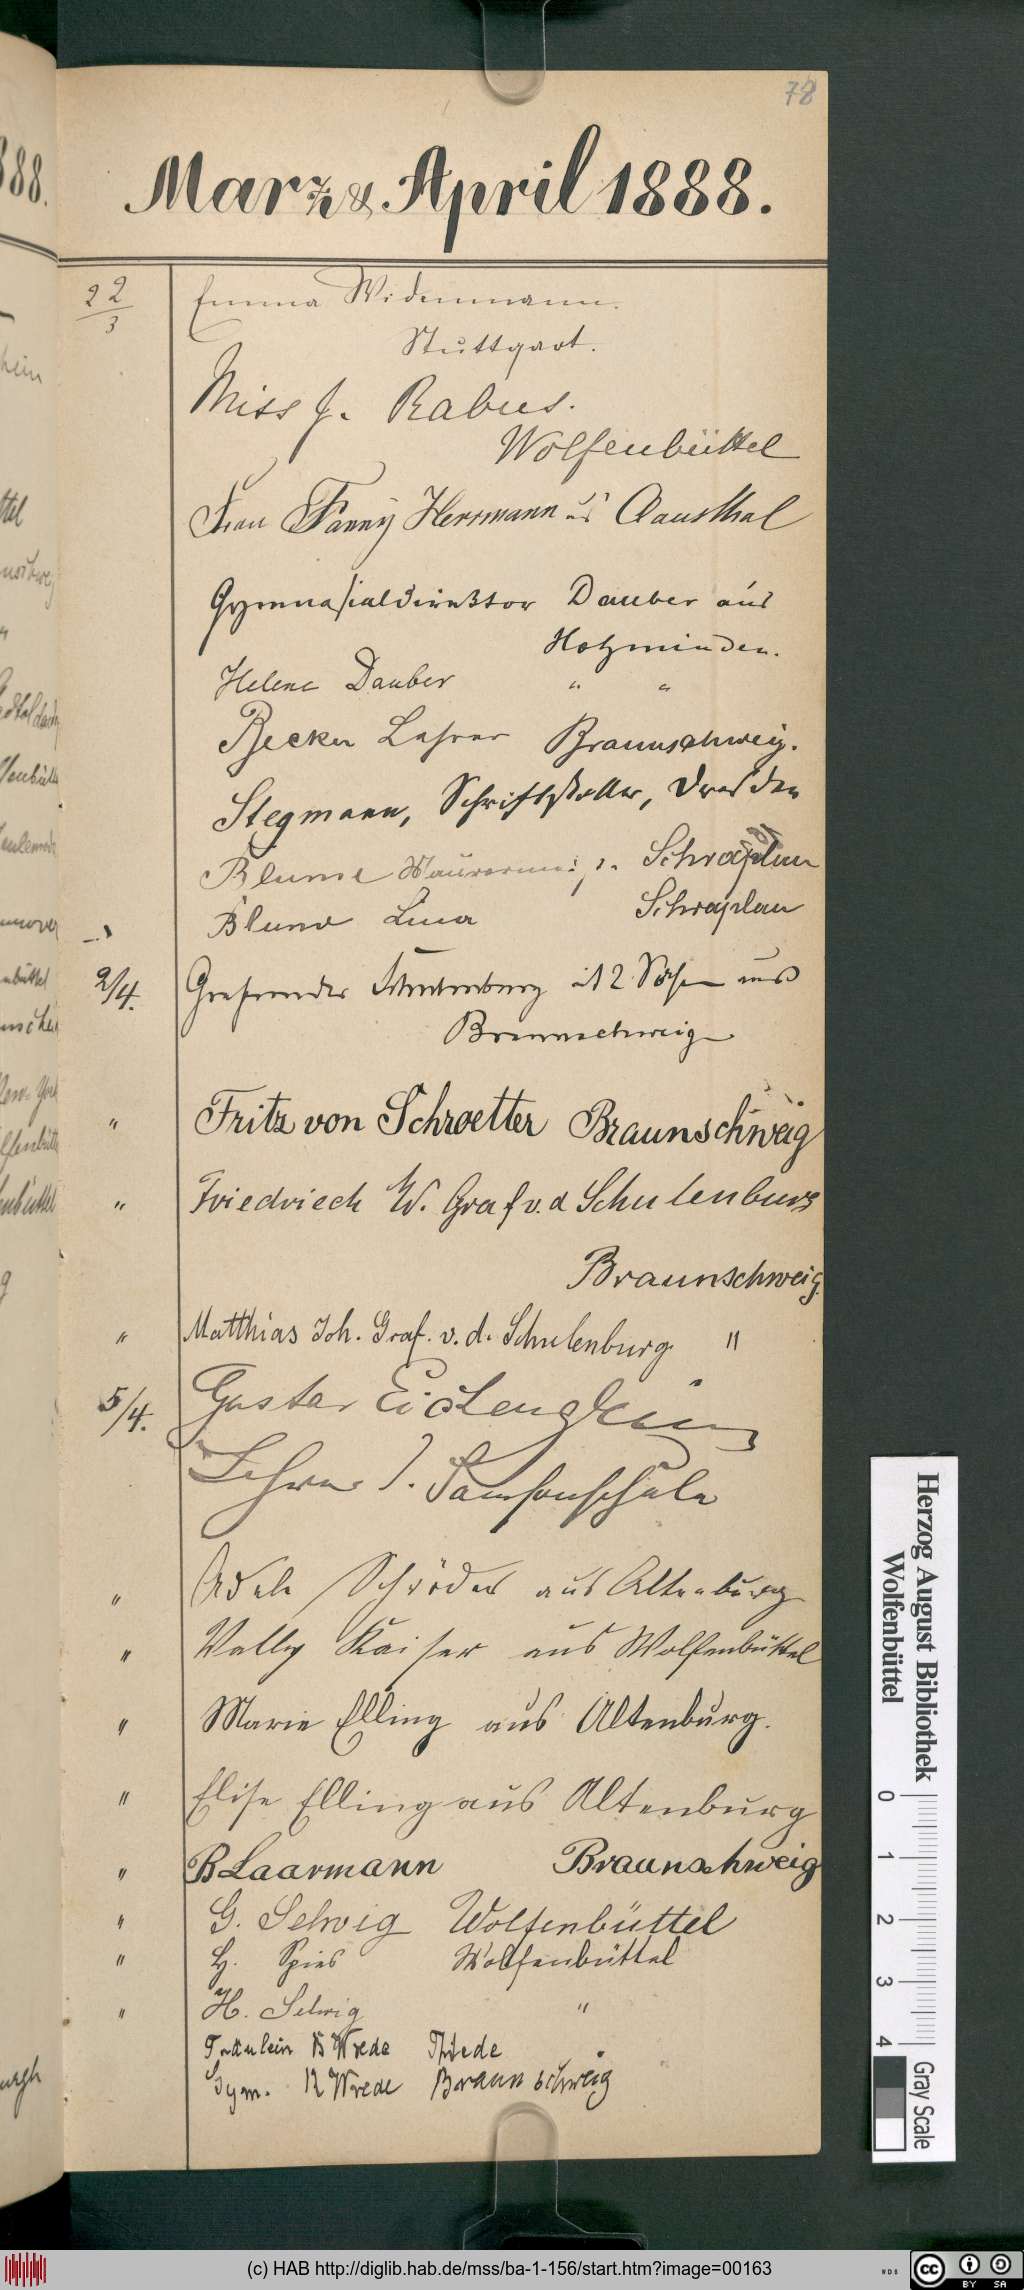 78
Marz & April 1888.
22/3 Emma Widenmann.
Stuttgart.
Miss J. Rabus.
Wolfenbüttel
Frau Fanny Herrmann aus Clausthal
Gymnasialdirektor Dauber aus
Holzminden.
Helene Dauber " "
Becker Lehrer Braunschweig.
Stegmann, Schriftsteller, Dresden
Blume Schraplau
Blume Lina Schraplau
2/4. Schulenburg 2 aus
Braunschweig
" Fritz von Schroetter Braunschweig
" Friedriech W. Graf v. d Schulenburg
Braunschweig.
" Matthias Joh. Graf. v. d. Schulenburg "
5/4. Gustav
Lehrer Samsonschule
" Adele Schröder aus Altenburg
" Vally Kaiser aus Wolfenbüttel
" Marie Elling aus Altenburg.
" Elise Elling aus Altenburg
" B Laarmann Braunschweig
" G. Selwig Wolfenbüttel
" H. Spies Wolfenbüttel
" H. Selwig "
Fräulein B Wrede Thiede
Gym. R Wrede Braunschweig
Herzog August Bibliothek
Wolfenbüttel
0 1 2 3 4
Gray Scale
(c) HAB http://diglib.hab.de/mss/ba-1-156/start.htm?image=00163
WDB
cc BY SA